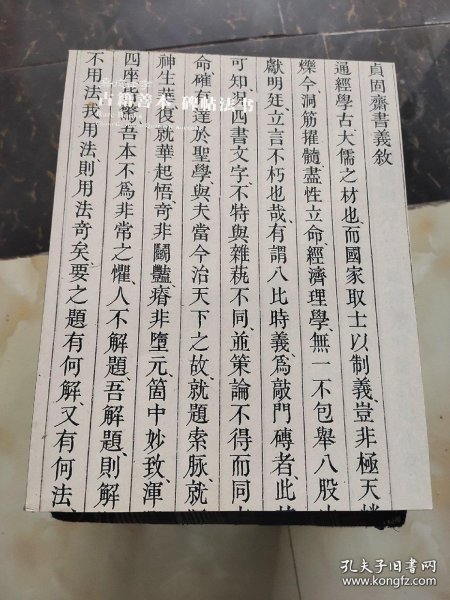 貞固齋書義敘
通經學古大儒之材也而國家取士以制義豈非極天
爍今洞筋擢髓盡性立命經濟理學無一不包舉八股
獻明廷立言不朽也哉有謂八比時義爲敲門磚者此
可知況四書文字不特與雜萟不同並策論不得而同
命確有達於聖學與夫當今治天下之故就題索脉就
神生華復就華起悟奇非鬭豔瘠非墮元箇中妙致渾
四座皆驚吾本不爲非常之懼人不解題吾解題則解
不用法我用法則用法奇矣要之題有何解又有何法
古籍善本 碑帖法书
孔夫子旧书网
www.kongfz.com